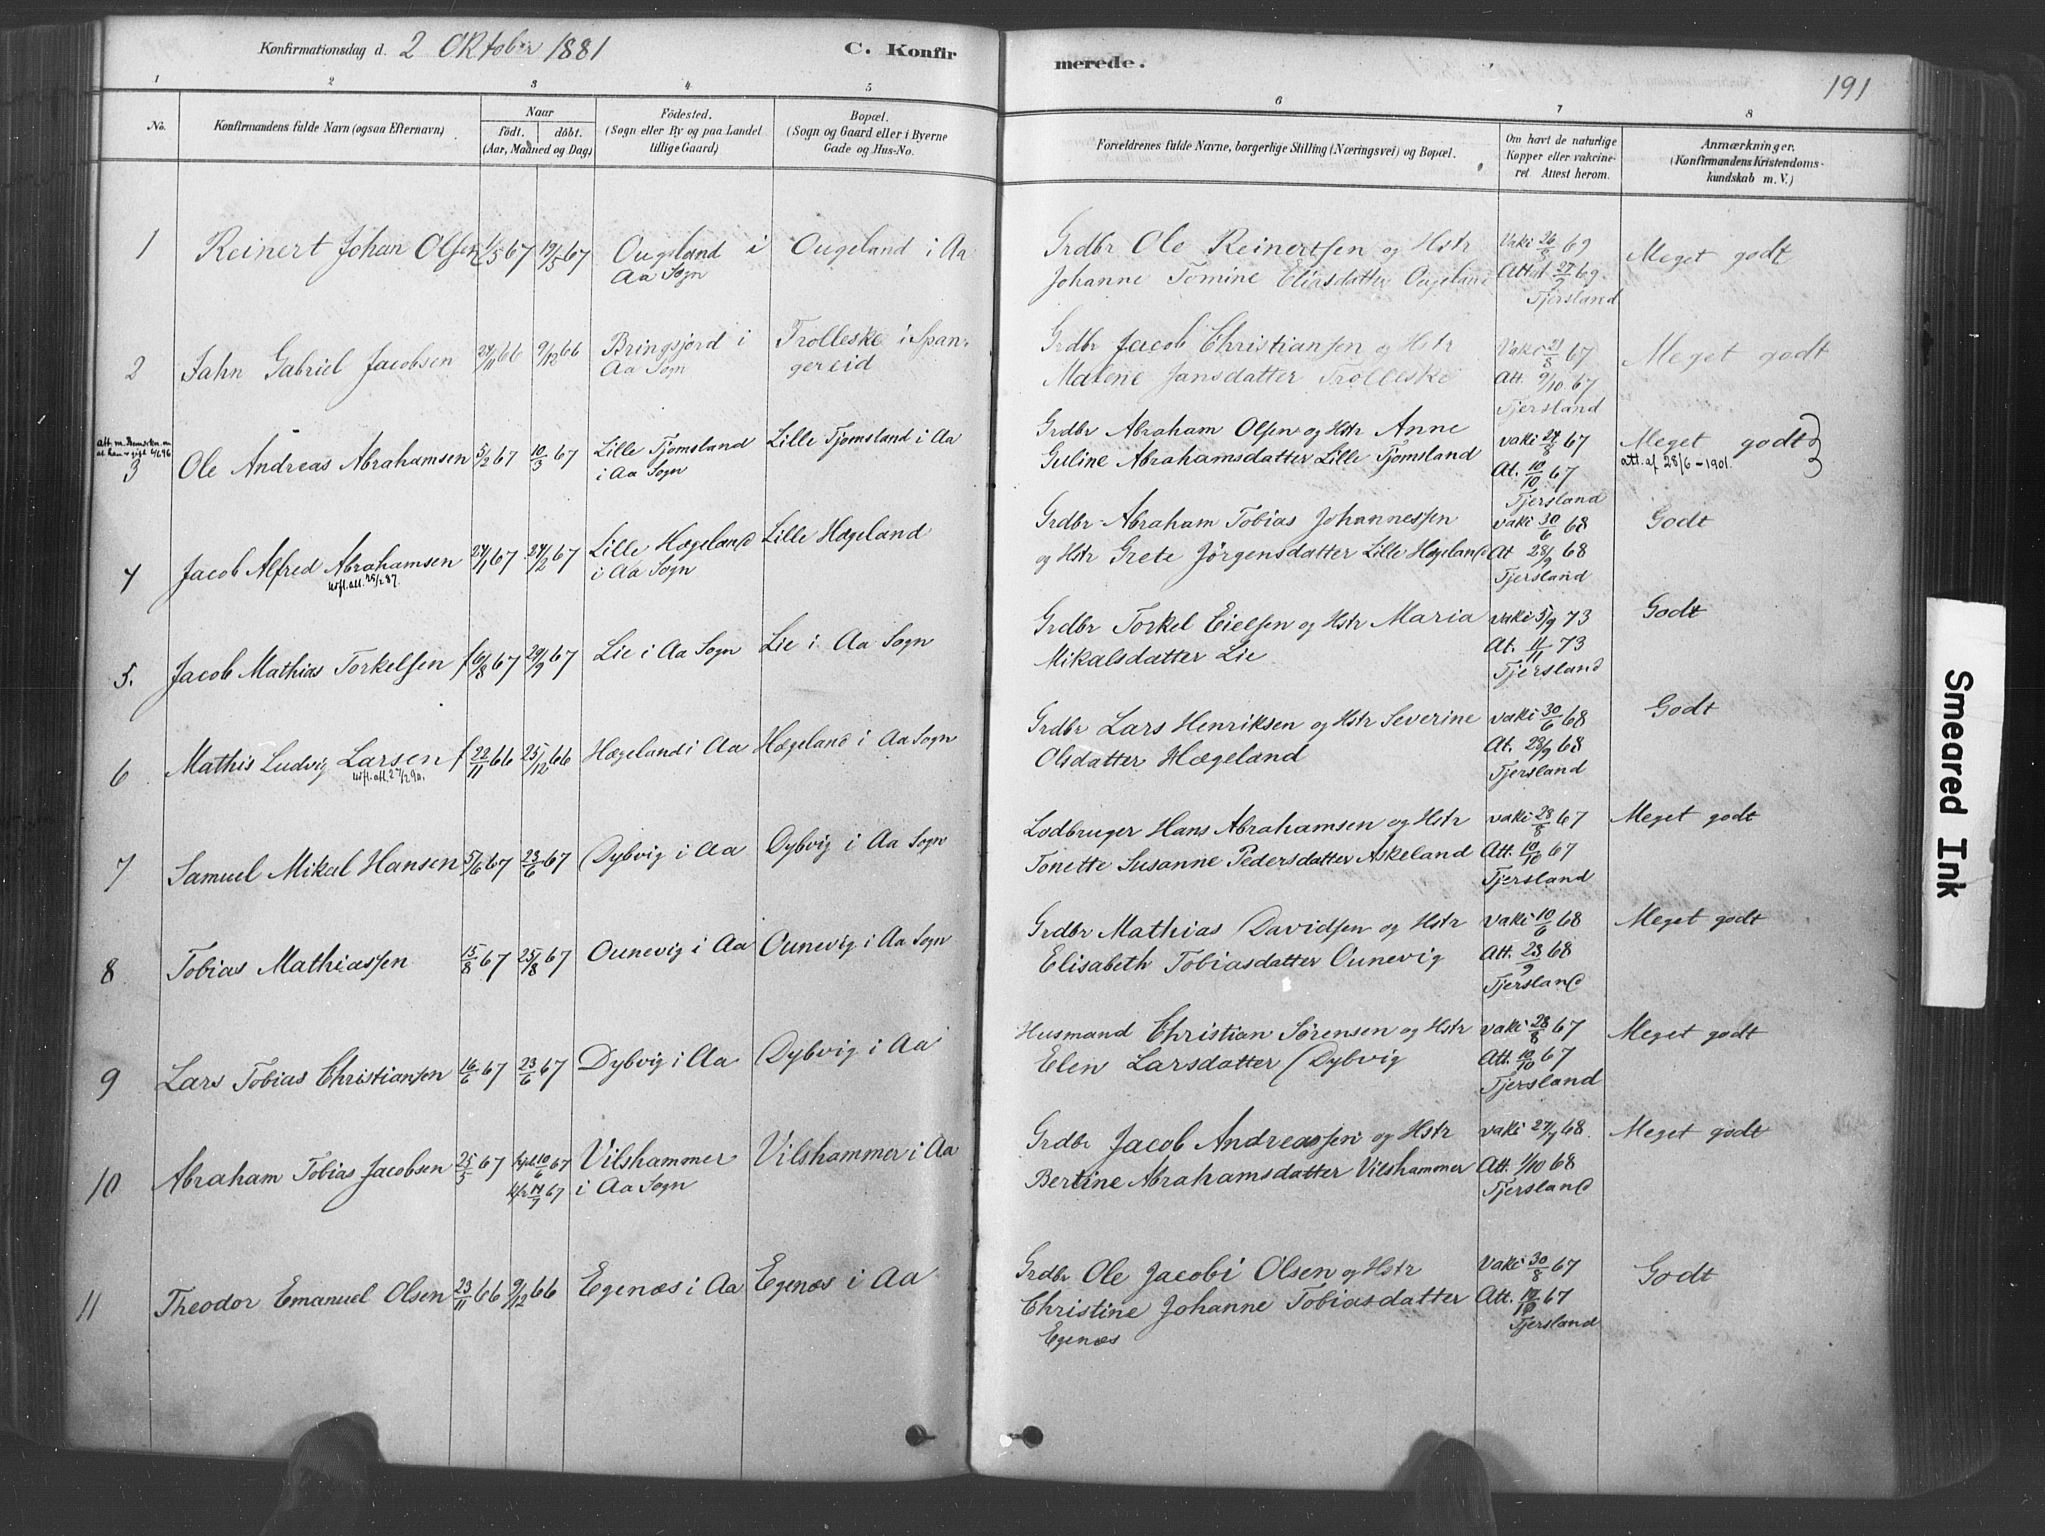 Konfirmationsdag d. 2 Oktober 1881
C. Konfirmerede.
191
1 2 3 4 5 6 7 8
No.
Konfirmandens fulde Navn (ogsaa Efternavn)
Naar
födt. döbt.
(Aar, Maaned og Dag)
Födested.
(Sogn eller By og paa Landet
tillige Gaard)
Bopæl.
(Sogn og Gaard eller i Byerne
Gade og Hus-No.
Forældrenes fulde Navne, borgerlige Stilling (Næringsvei) og Bopæl.
Om havt de naturlige
Kopper eller vakcine-
ret. Attest herom.
Anmærkninger.
(Konfirmandens Kristendoms-
kundskab m. V.)
1 Reinert Johan Olsen 1/5 67 19/5 67 Ougeland i Ougeland i Aa Grdbr Ole Reinertsen og Hstr Vaki 26/8 69 Meget godt
Aa Sogn Johanne Tomine Eliasdatter Ougeland Att 27/9 69.
Tjersland
2 Jahn Gabriel Jacobsen 24/11 66 9/12 66 Bringsjord i Trolleske i Span- Grdbr Jacob Christiansen og Hstr Vaki 21/8 67 Meget godt
Aa Sogn gereid Malene Jansdatter Trolleske Att. 9/10 67
Tjersland
3 Ole Andreas Abrahamsen 5/2 67 10/3 67 Lille Tjomsland Lille Tjomsland i Aa Grdbr Abraham Olsen og Hstr Anne vaki 27/8 67 Meget godt
i Aa Sogn Guline Abrahamsdatter Lille Tjomsland At. 10/10 67 att. af 28/6 - 1901.
Tjersland
4 Jacob Alfred Abrahamsen 24/1 67 24/2 67 Lille Hægeland Lille Hægeland Grdbr Abraham Tobias Johannessen vaki 30/6 68 Godt
i Aa Sogn og Hstr Grete Jörgensdatter Lille Hægeland At 28/9 68
Tjersland
5. Jacob Mathias Torkelsen f 16/8 67 29/9 67 Lie i Aa Sogn Lie i Aa Sogn Grdbr Torkel Eielsen og Hstr Maria vaki 5/9 73 Godt
Mikalsdatter Lie At. 11/11 73
Tjersland
6 Mathis Ludvig Larsen f 22/11 66 25/12 66 Hægeland i Aa Hægeland i Aa Sogn Grdbr Lars Henriksen og Hstr Severine vaki 30/6 68 Godt
Olsdatter Hægeland At. 28/9 68
Tjersland
7 Samuel Mikal Hansen 5/6 67 23/6 67 Dybvig i Aa Dybvig i Aa Sogn Lodbruger Hans Abrahamsen og Hstr vaki 28/8 67 Meget godt
Tonette Susanne Pedersdatter Askeland Att. 10/10 67
Tjersland
8 Tobias Mathiassen 15/8 67 25/8 67 Ounevig i Aa Ounevig i Aa Sogn Grdbr Mathias Davidsen og Hstr vaki 10/6 68 Meget godt
Elisabeth Tobiasdatter Ounevig Att. 23/9 68
Tjersland
9 Lars Tobias Christiansen 16/6 67 23/6 67 Dybvig i Aa Dybvig i Aa Husmand Christian Sörensen og Hstr vaki 28/8 67 Meget godt
Elen Larsdatter Dybvig Att. 10/10 67
Tjersland
10 Abraham Tobias Jacobsen 25/5 67 10/6 67 Vilshammer Vilshammer i Aa Grdbr Jacob Andreassen og Hstr vaki 27/9 68. Meget godt
14/7 67 i Aa Sogn Bertine Abrahamsdatter Vilshammer Att. 1/10 68
Tjersland
11 Theodor Emanuel Olsen 23/11 66 9/12 66 Egenæs i Aa Egenæs i Aa Grdbr Ole Jacobi Olsen og Hstr Vaki 30/8 67 Godt
Christine Johanne Tobiasdatter Att. 10/10 67
Egenæs Tjersland
Smeared Ink